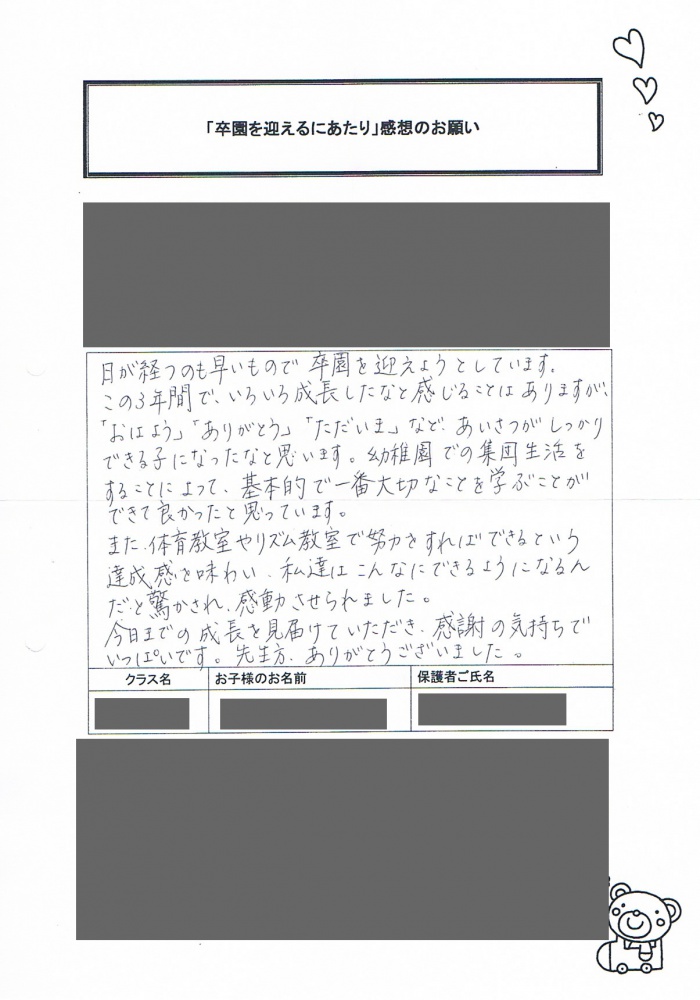 「卒園を迎えるにあたり」感想のお願い
日が経つのも早いもので 卒園を迎えようとしています。
この3年間で、いろいろ成長したなと感じることはありますが、
「おはよう」「ありがとう」「ただいま」など、あいさつがしっかり
できる子になったなと思います。幼稚園での集団生活を
することによって、基本的で一番大切なことを学ぶことが
できて良かったと思っています。
また、体育教室やリズム教室で努力をすればできるという
達成感を味わい、私達はこんなにできるようになるん
だと驚かされ、感動させられました。
今日までの成長を見届けていただき、感謝の気持ちで
いっぱいです。先生方、ありがとうございました。
クラス名 お子様のお名前 保護者ご氏名